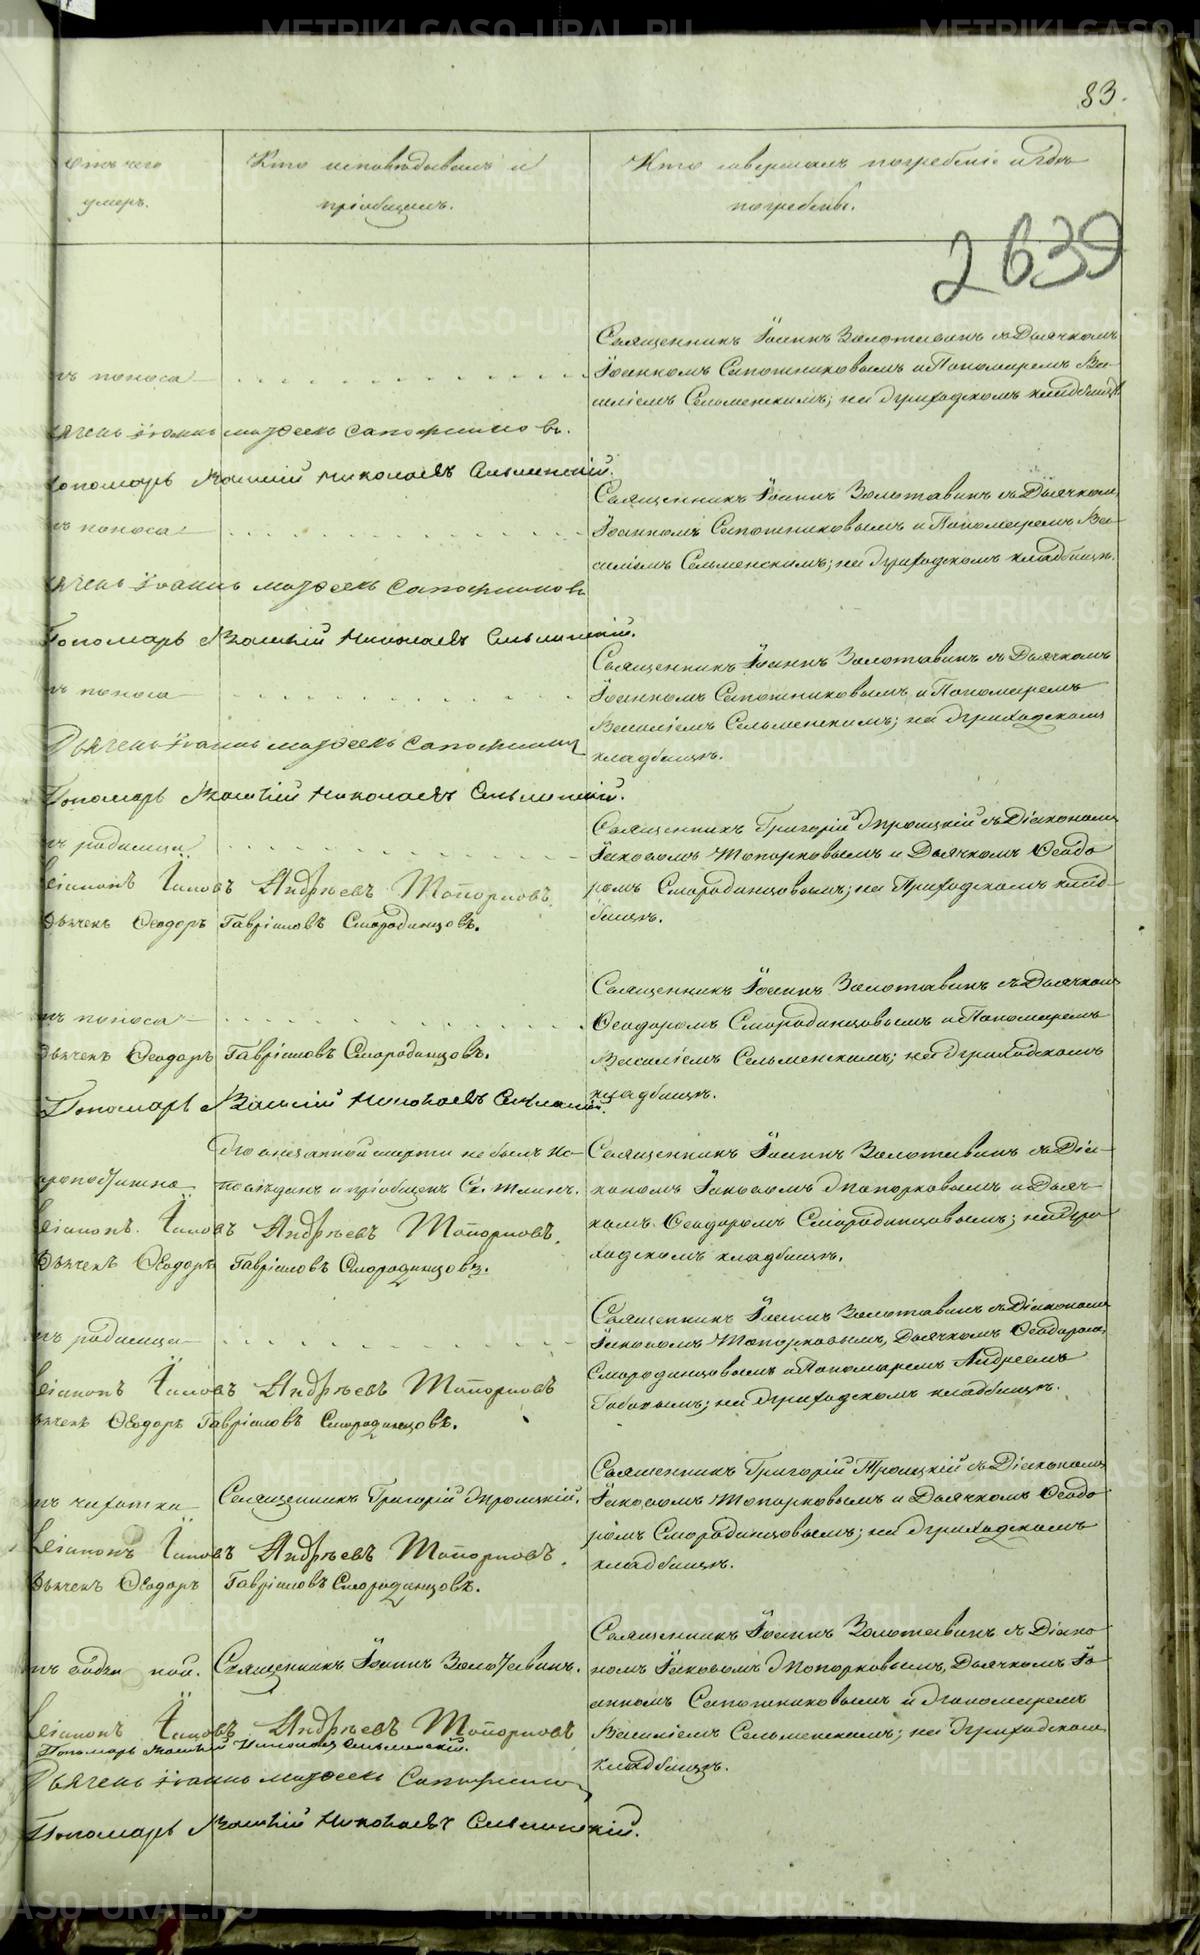 83.
Отъ чего
умеръ.
Кто исповѣдывалъ и
пріобщалъ.
Кто совершалъ погребеніе и гдѣ
погребены.
2639
Священникъ Іоаннъ Золотавинъ съ Дьячкомъ
Іоанномъ Сапожниковымъ и Пономаремъ Ва-
силіемъ Сельменскимъ; на Приходскомъ кладбищѣ
поноса
Іоаннъ Матѳеевъ Сапожниковъ.
Пономарь Василій Николаевъ Сельменскій.
Священникъ Іоаннъ Золотавинъ съ Дьячкомъ
Іоанномъ Сапожниковымъ и Пономаремъ Ва-
силіемъ Сельменскимъ; на Приходскомъ кладбищѣ.
поноса
Іоаннъ Матѳеевъ Сапожниковъ
Пономарь Василій Николаевъ Сельменскій.
Священникъ Іоаннъ Золотавинъ съ Дьячкомъ
Іоанномъ Сапожниковымъ и Пономаремъ
Василіемъ Сельменскимъ; на Приходскомъ
кладбищѣ.
поноса
Дьячекъ Іоаннъ Матѳеевъ Сапожников
Пономарь Василій Николаевъ Сельменскій.
Священникъ Григорій Троицкій съ Діакономъ
Іаковомъ Топорковымъ и Дьячкомъ Ѳеодо
ромъ Смородинцовымъ; на Приходскомъ клад-
бищѣ.
родимца
Діаконъ Іаковъ Андрѣевъ Топорковъ.
Дьячекъ Ѳеодоръ Гавріиловъ Смородинцовъ.
Священникъ Іоаннъ Золотавинъ съ Дьячкомъ
Ѳеодоромъ Смородинцовымъ и Пономаремъ
Василіемъ Сельменскимъ; на Приходскомъ
кладбищѣ.
поноса
Дьячекъ Ѳеодоръ Гавріиловъ Смородинцовъ.
Пономарь Василій Николаевъ Сельменскій.
По внезапной смерти не былъ ис-
повѣданъ и пріобщенъ Св. Таинъ.
Священникъ Іоаннъ Золотавинъ съ Діа-
кономъ Іаковомъ Топорковымъ и Дьяч-
комъ Ѳеодоромъ Смородинцовымъ; на При
ходскомъ кладбищѣ.
Діаконъ Іаковъ Андрѣевъ Топорковъ.
Дьячекъ Ѳеодоръ Гавріиловъ Смородинцовъ.
Священникъ Іоаннъ Золотавинъ съ Діакономъ
Іаковомъ Топорковымъ, Дьячкомъ Ѳеодоромъ
Смородинцовымъ и Пономаремъ Андреемъ
Бабинымъ; на Приходскомъ кладбищѣ.
родимца
Діаконъ Іаковъ Андрѣевъ Топорковъ
Дьячекъ Ѳеодоръ Гавріиловъ Смородинцовъ.
Священникъ Григорій Троицкій съ Діакономъ
Іаковомъ Топорковымъ и Дьячкомъ Ѳеодо
ромъ Смородинцовымъ; на Приходскомъ
кладбищѣ.
чахотки
Священникъ Григорій Троицкій.
Діаконъ Іаковъ Андрѣевъ Топорковъ.
Дьячекъ Ѳеодоръ Гавріиловъ Смородинцовъ.
Священникъ Іоаннъ Золотавинъ съ Діако
номъ Іаковомъ Топорковымъ, Дьячкомъ Іо
анномъ Сапожниковымъ и Пономаремъ
Василіемъ Сельменскимъ; на Приходском
кладбищѣ.
Священникъ Іоаннъ Золотавинъ.
Діаконъ Іаковъ Андрѣевъ Топорковъ
Пономарь Василій Николаевъ Сельменскій.
Дьячекъ Іоаннъ Матѳеевъ Сапожников
Пономарь Василій Николаевъ Сельменскій.
METRIKI.GASO-URAL.RU